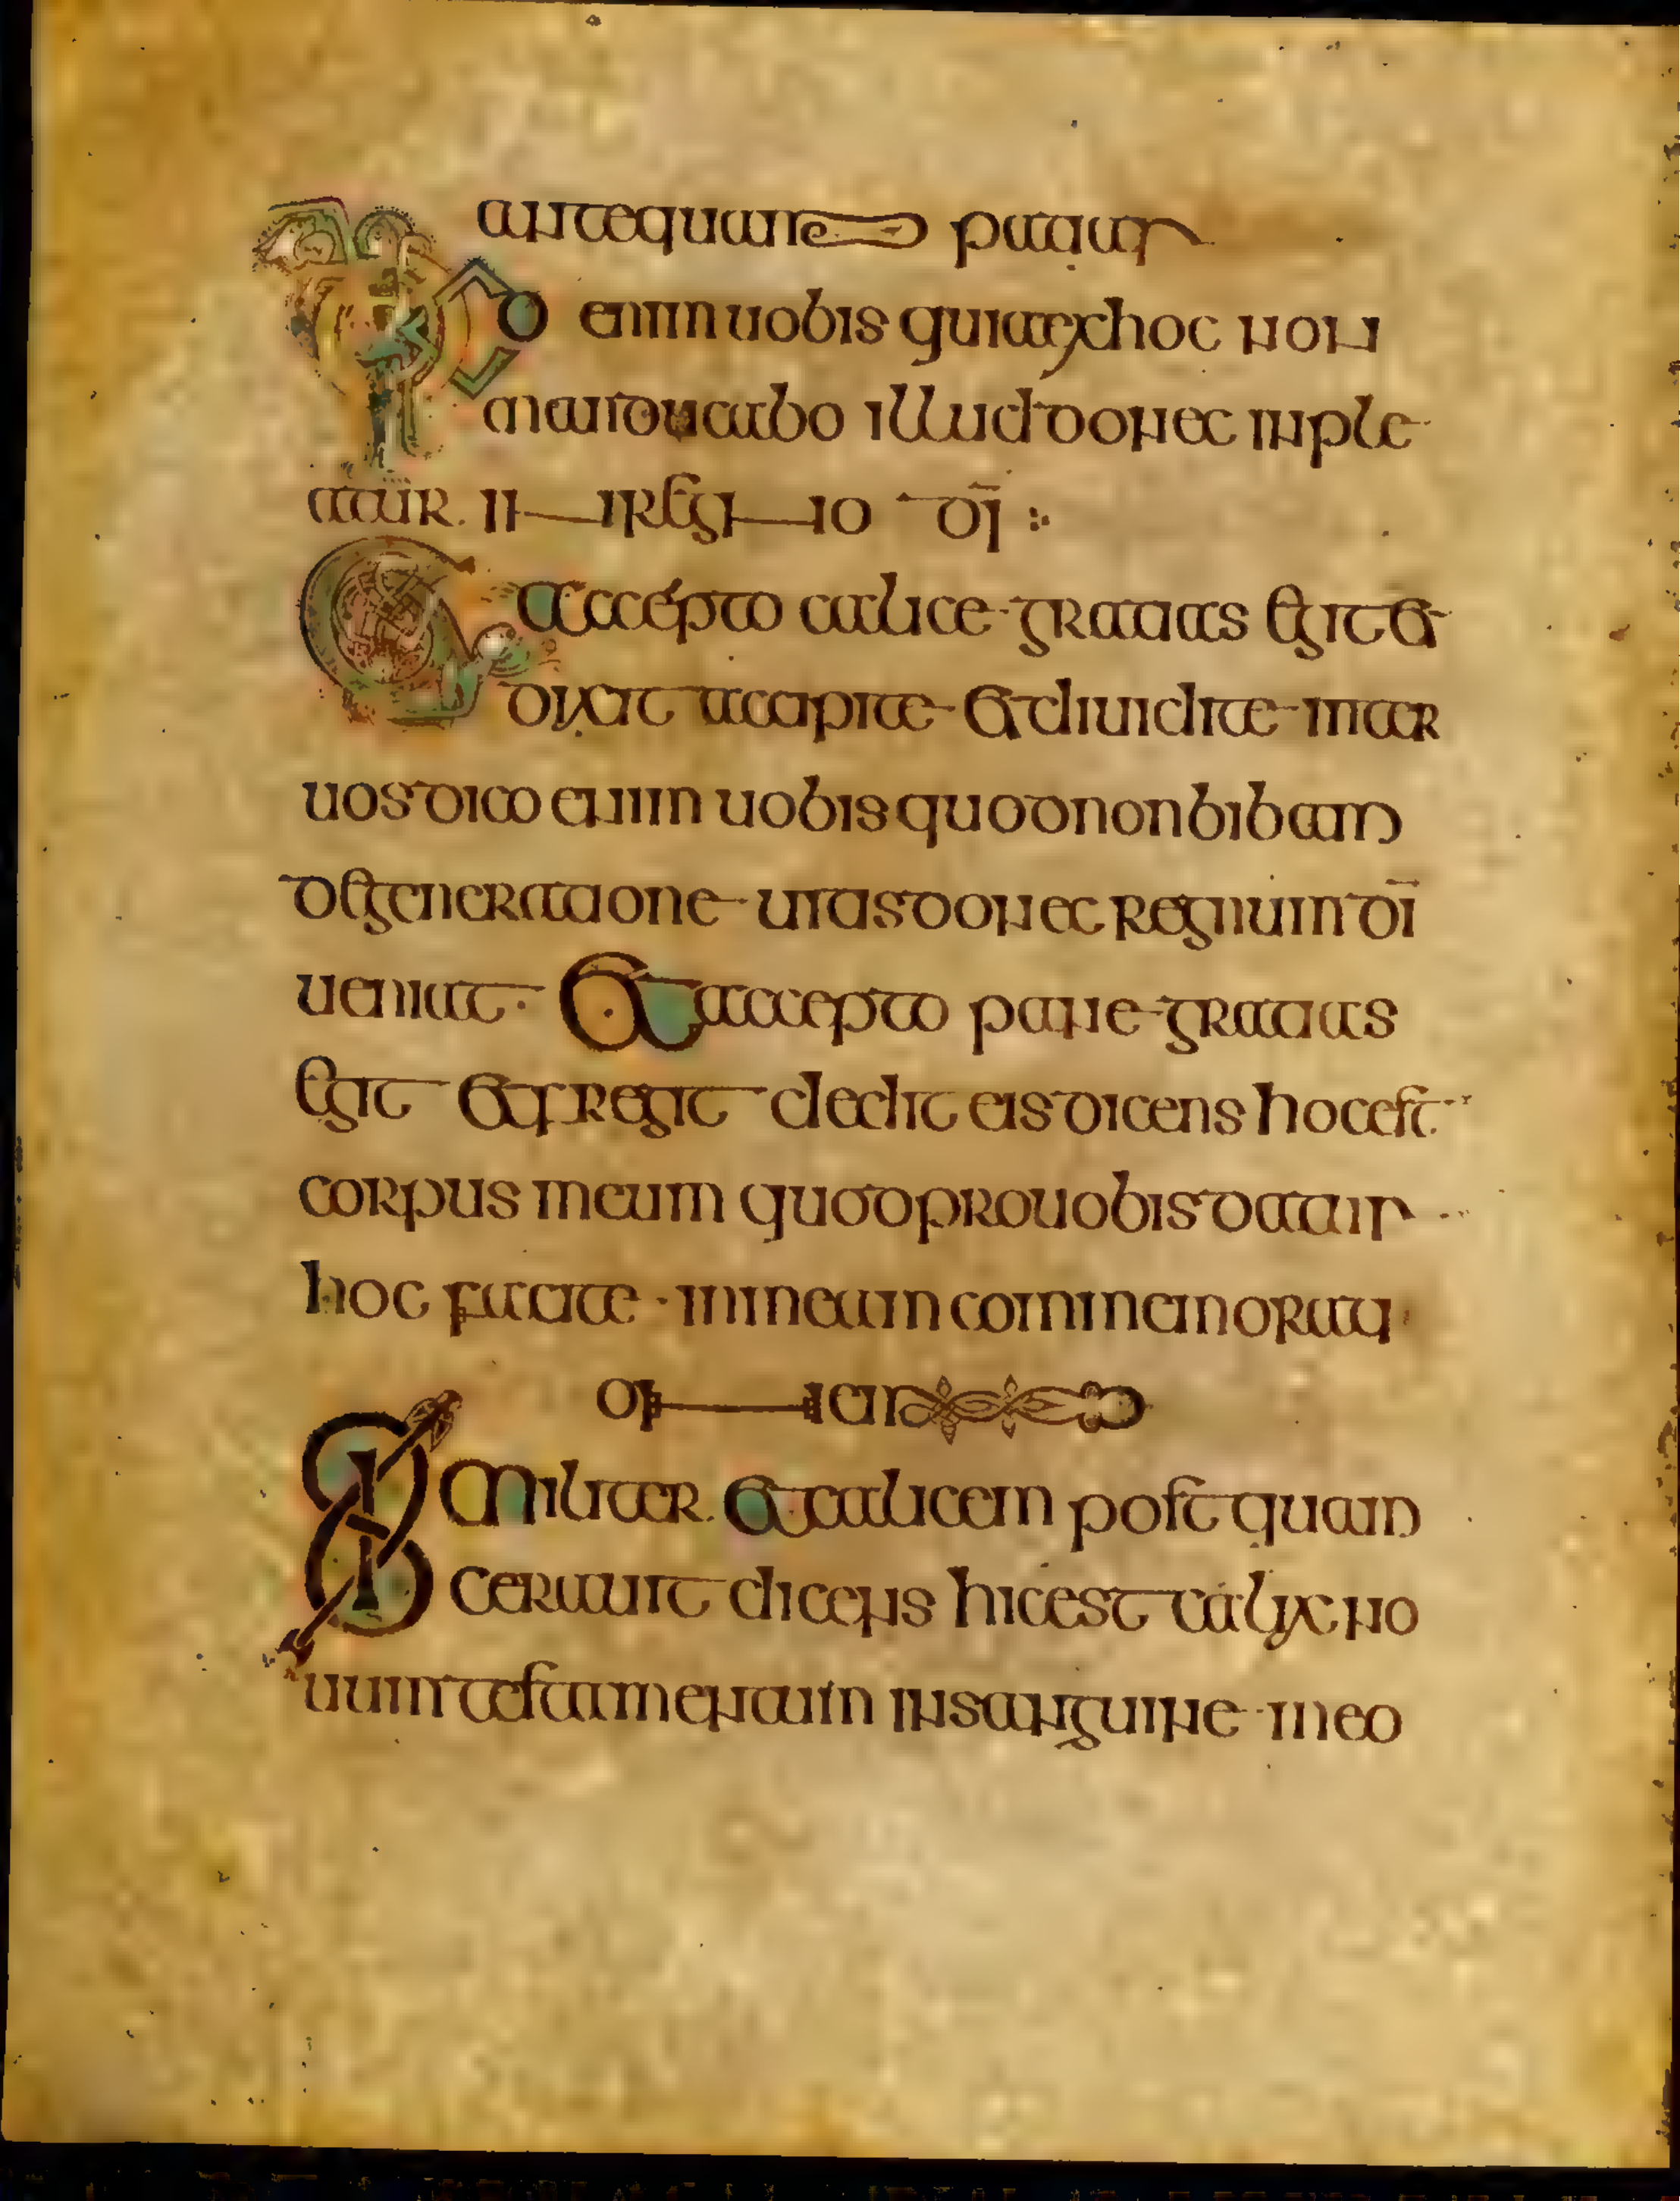 antequam patiar
Dico enim uobis quia ex hoc non
manducabo illud donec inple
atur in regno dī
Et accepto calice gratias egit et
dixit accipite et diuidite inter
uos dico enim uobis quod non bibam
de generatione uitis donec regnum dī
ueniat. Et accepto pane gratias
egit et fregit dedit eis dicens hoc est
corpus meum quod pro uobis datur
hoc facite in meam commemorati
onem
Similiter et calicem postquam
cenauit dicens hic est calix no
uum testamentum in sanguine meo